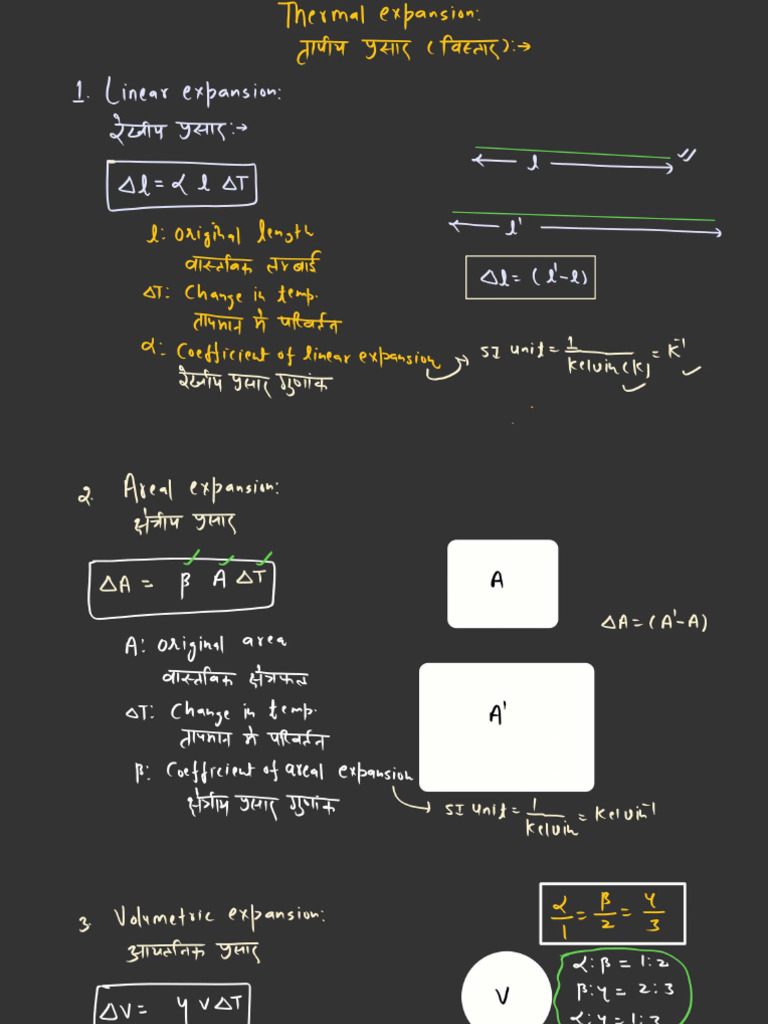 Thermal expansion:
तापीय प्रसार (विस्तार):→
1. Linear expansion:
रेखीय प्रसार:→
Δl = α l ΔT
l: original length
वास्तविक लम्बाई
ΔT: Change in temp.
तापमान में परिवर्तन
α: Coefficient of linear expansion
रेखीय प्रसार गुणांक
l
l'
Δl = (l'-l)
SI unit = 1/Kelvin(K) = K⁻¹
2. Areal expansion:
क्षेत्रीय प्रसार
ΔA = β A ΔT
A: original area
वास्तविक क्षेत्रफल
ΔT: Change in temp.
तापमान में परिवर्तन
β: Coefficient of areal expansion
क्षेत्रीय प्रसार गुणांक
A
ΔA = (A'-A)
A'
SI unit = 1/Kelvin = Kelvin⁻¹
3. Volumetric expansion:
आयतनिक प्रसार
ΔV = γ V ΔT
α/1 = β/2 = γ/3
V
α:β = 1:2
β:γ = 2:3
α:γ = 1:3